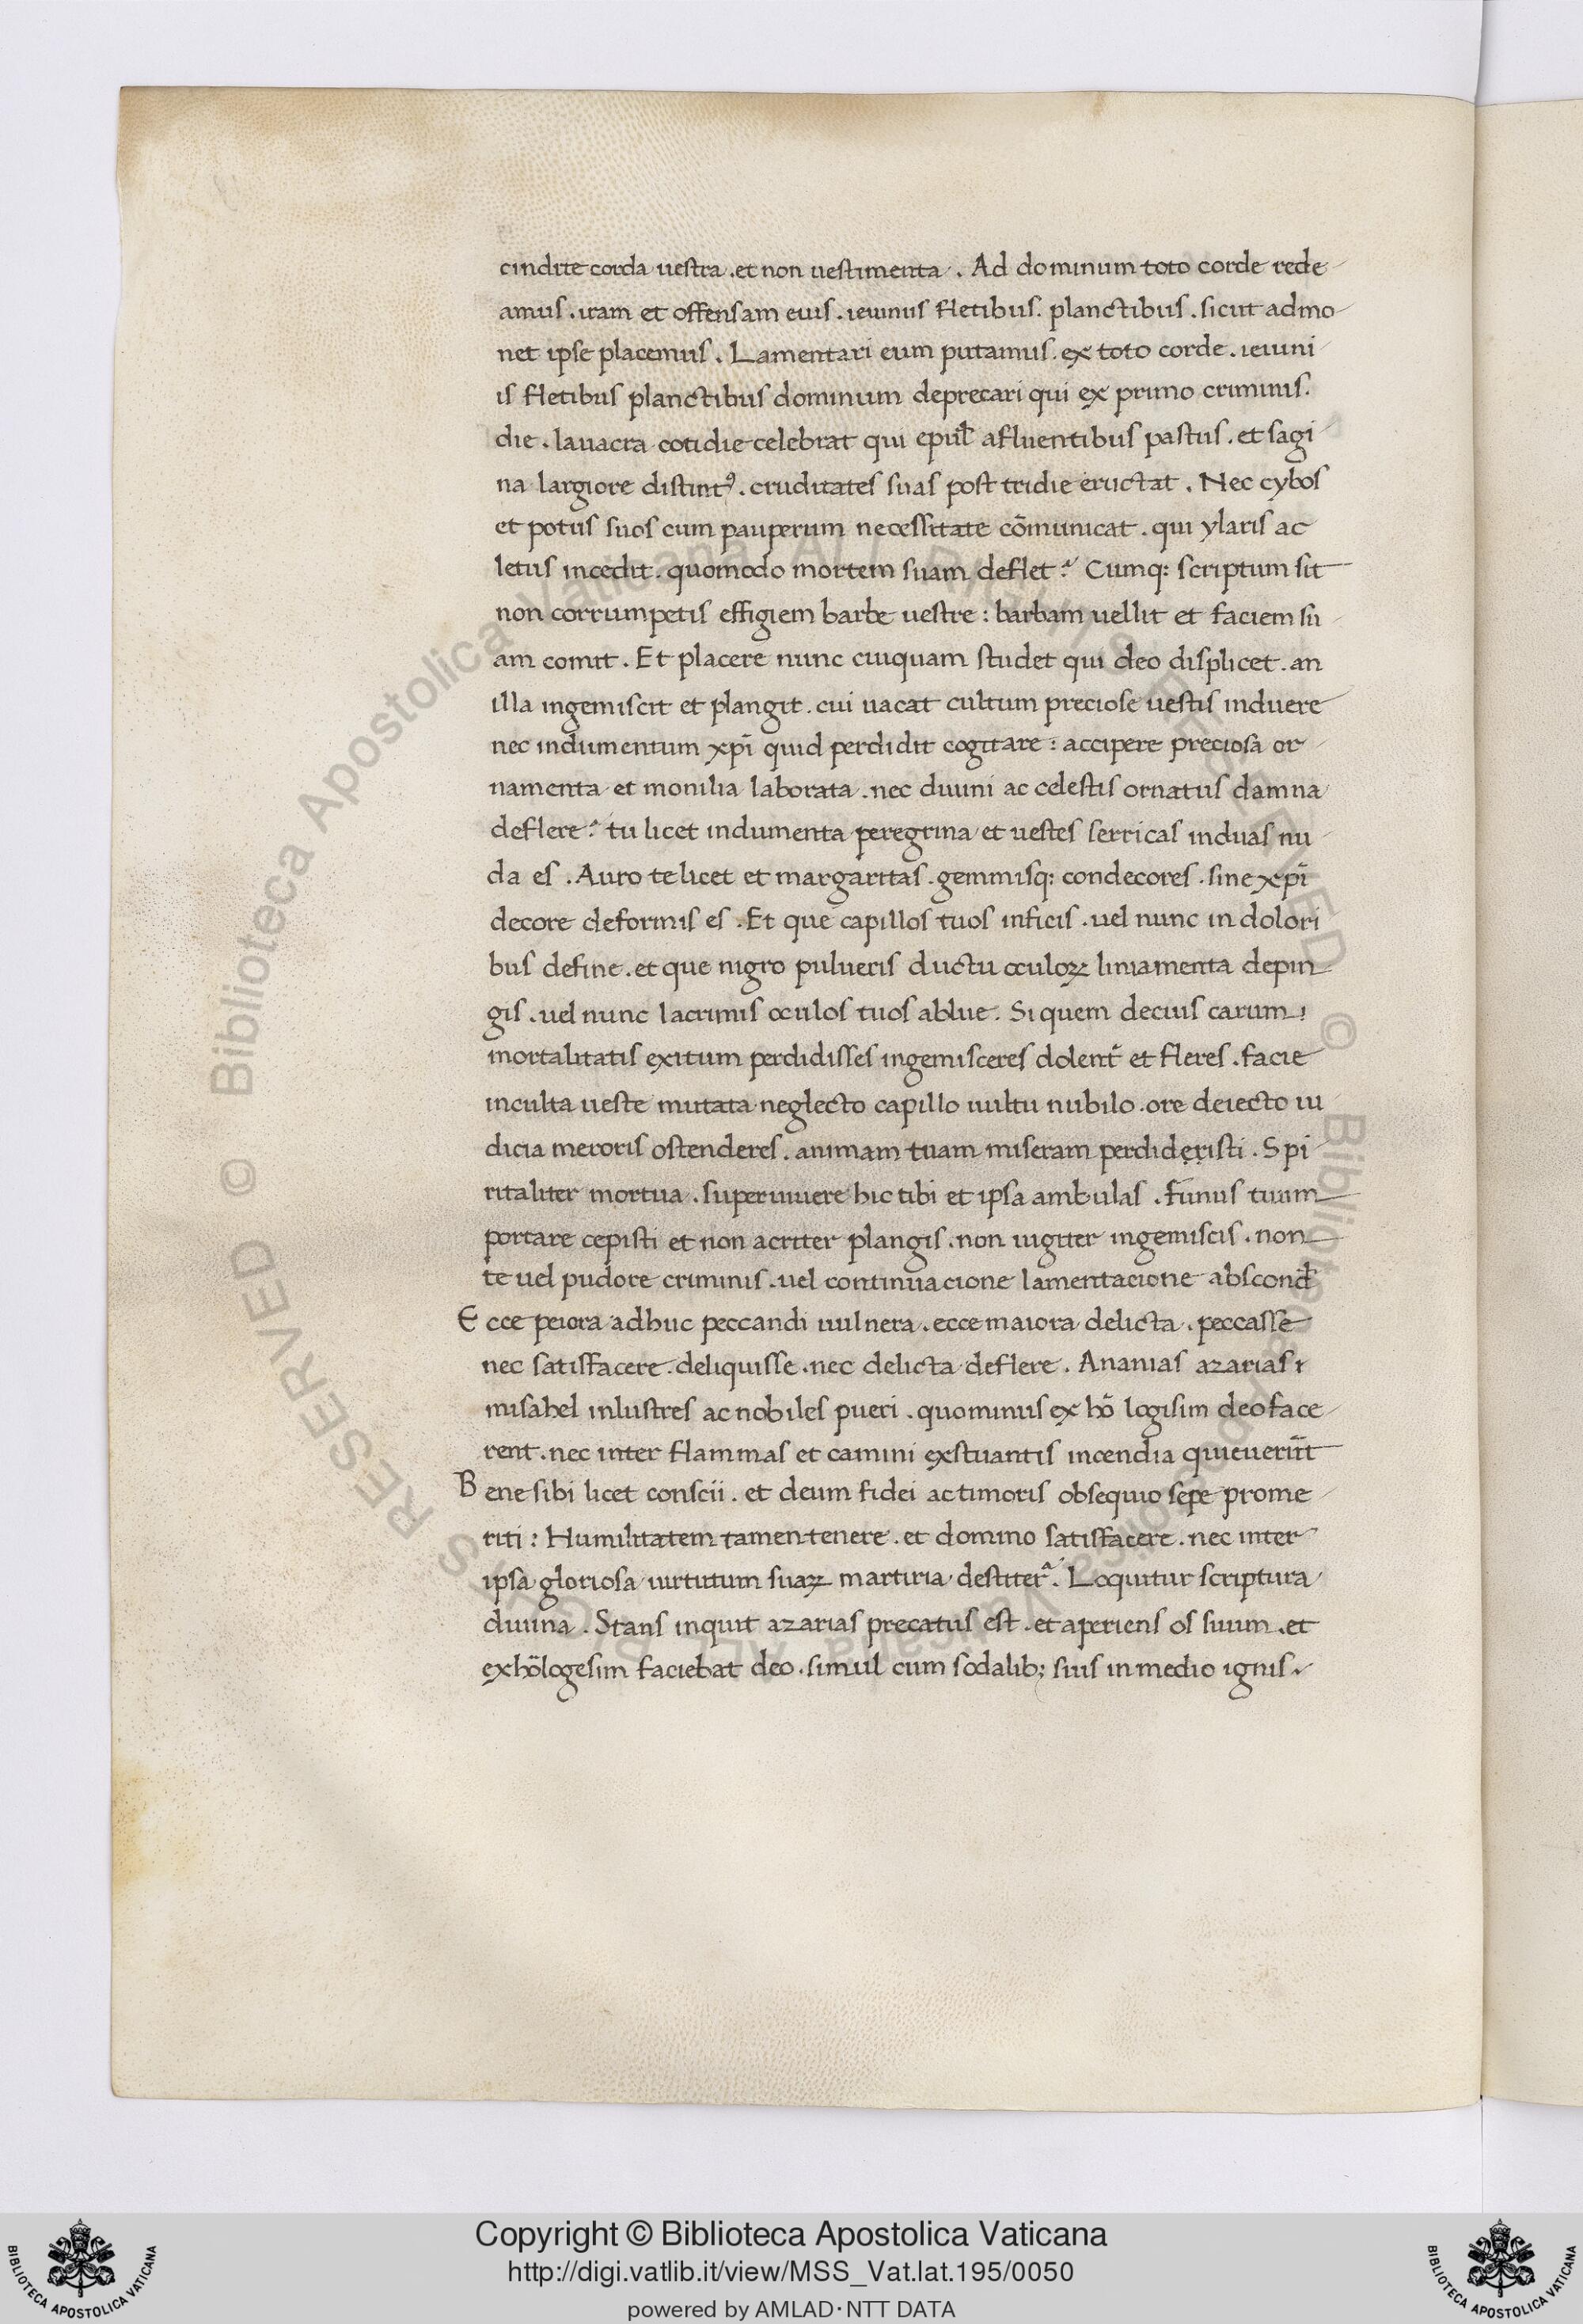 cindite corda uestra . et non uestimenta . Ad dominum toto corde rede
amus . iram et offensam eius . ieiuniis fletibus . planctibus . sicut admo
net ipse placemus . Lamentari eum putamus . ex toto corde . ieiuni
is fletibus planctibus dominum deprecari qui ex primo criminis .
die . lauacra cotidie celebrat qui epul̃ afluentibus pastus . et sagi
na largiore distintꝰ . cruditates suas post tridie eructat . Nec cybos
et potus suos cum pauperum necessitate cõmunicat . qui ylaris ac
letus incedit . quomodo mortem suam deflet ? Cumq: scriptum sit
non corrumpetis effigiem barbe uestre : barbam uellit et faciem su
am comit . Et placere nunc cuiquam studet qui deo displicet . an
illa ingemiscit et plangit . cui uacat cultum preciose uestis induere
nec indumentum xp̄i quid perdidit cogitare : accipere preciosa or
namenta et monilia laborata . nec diuini ac celestis ornatus damna
deflere ? tu licet indumenta peregrina et uestes serricas induas nu
da es . Auro te licet et margaritas . gemmisq: condecores . sine xp̄i
decore deformis es . Et que capillos tuos inficis . uel nunc in dolori
bus define . et que nigro pulueris ductu oculoꝝ liniamenta depin
gis . uel nunc lacrimis oculos tuos ablue . Si quem deciuis carum
mortalitatis exitum perdidisses ingemisceres dolent̃ et fleres . facie
inculta ueste mutata neglecto capillo uultu nubilo . ore deiecto iu
dicia meroris ostenderes . animam tuam miseram perdideristi . Spi
ritaliter mortua . superuiuere hic tibi et ipsa ambulas . funus tuum
portare cepisti et non acriter plangis . non iugiter ingemiscis . non
te uel pudore criminis . uel continuacione lamentacione abscond̃
Ecce peiora adhuc peccandi uulnera . ecce maiora delicta . peccasse
nec satisfacere . deliquisse . nec delicta deflere . Ananias azarias
misahel inlustres ac nobiles pueri . quominus ex hõ logisim deo face
rent . nec inter flammas et camini exstuantis incendia quieuerũt
Bene sibi licet conscii . et deum fidei ac timoris obsequio sepe prome
riti : Humilitatem tamen tenere . et domino satisfacere . nec inter
ipsa gloriosa uirtutum suaꝝ martiria destiterᵃ . Loquitur scriptura
diuina . Stans inquit azarias precatus est . et aperiens os suum . et
exhõlogesim faciebat deo . simul cum sodalib; suis in medio ignis .
© Biblioteca Apostolica Vaticana ALL RIGHTS RESERVED
© Biblioteca Apostolica Vaticana ALL RIGHTS RESERVED
Copyright © Biblioteca Apostolica Vaticana
http://digi.vatlib.it/view/MSS_Vat.lat.195/0050
powered by AMLAD·NTT DATA
BIBLIOTECA APOSTOLICA VATICANA
BIBLIOTECA APOSTOLICA VATICANA